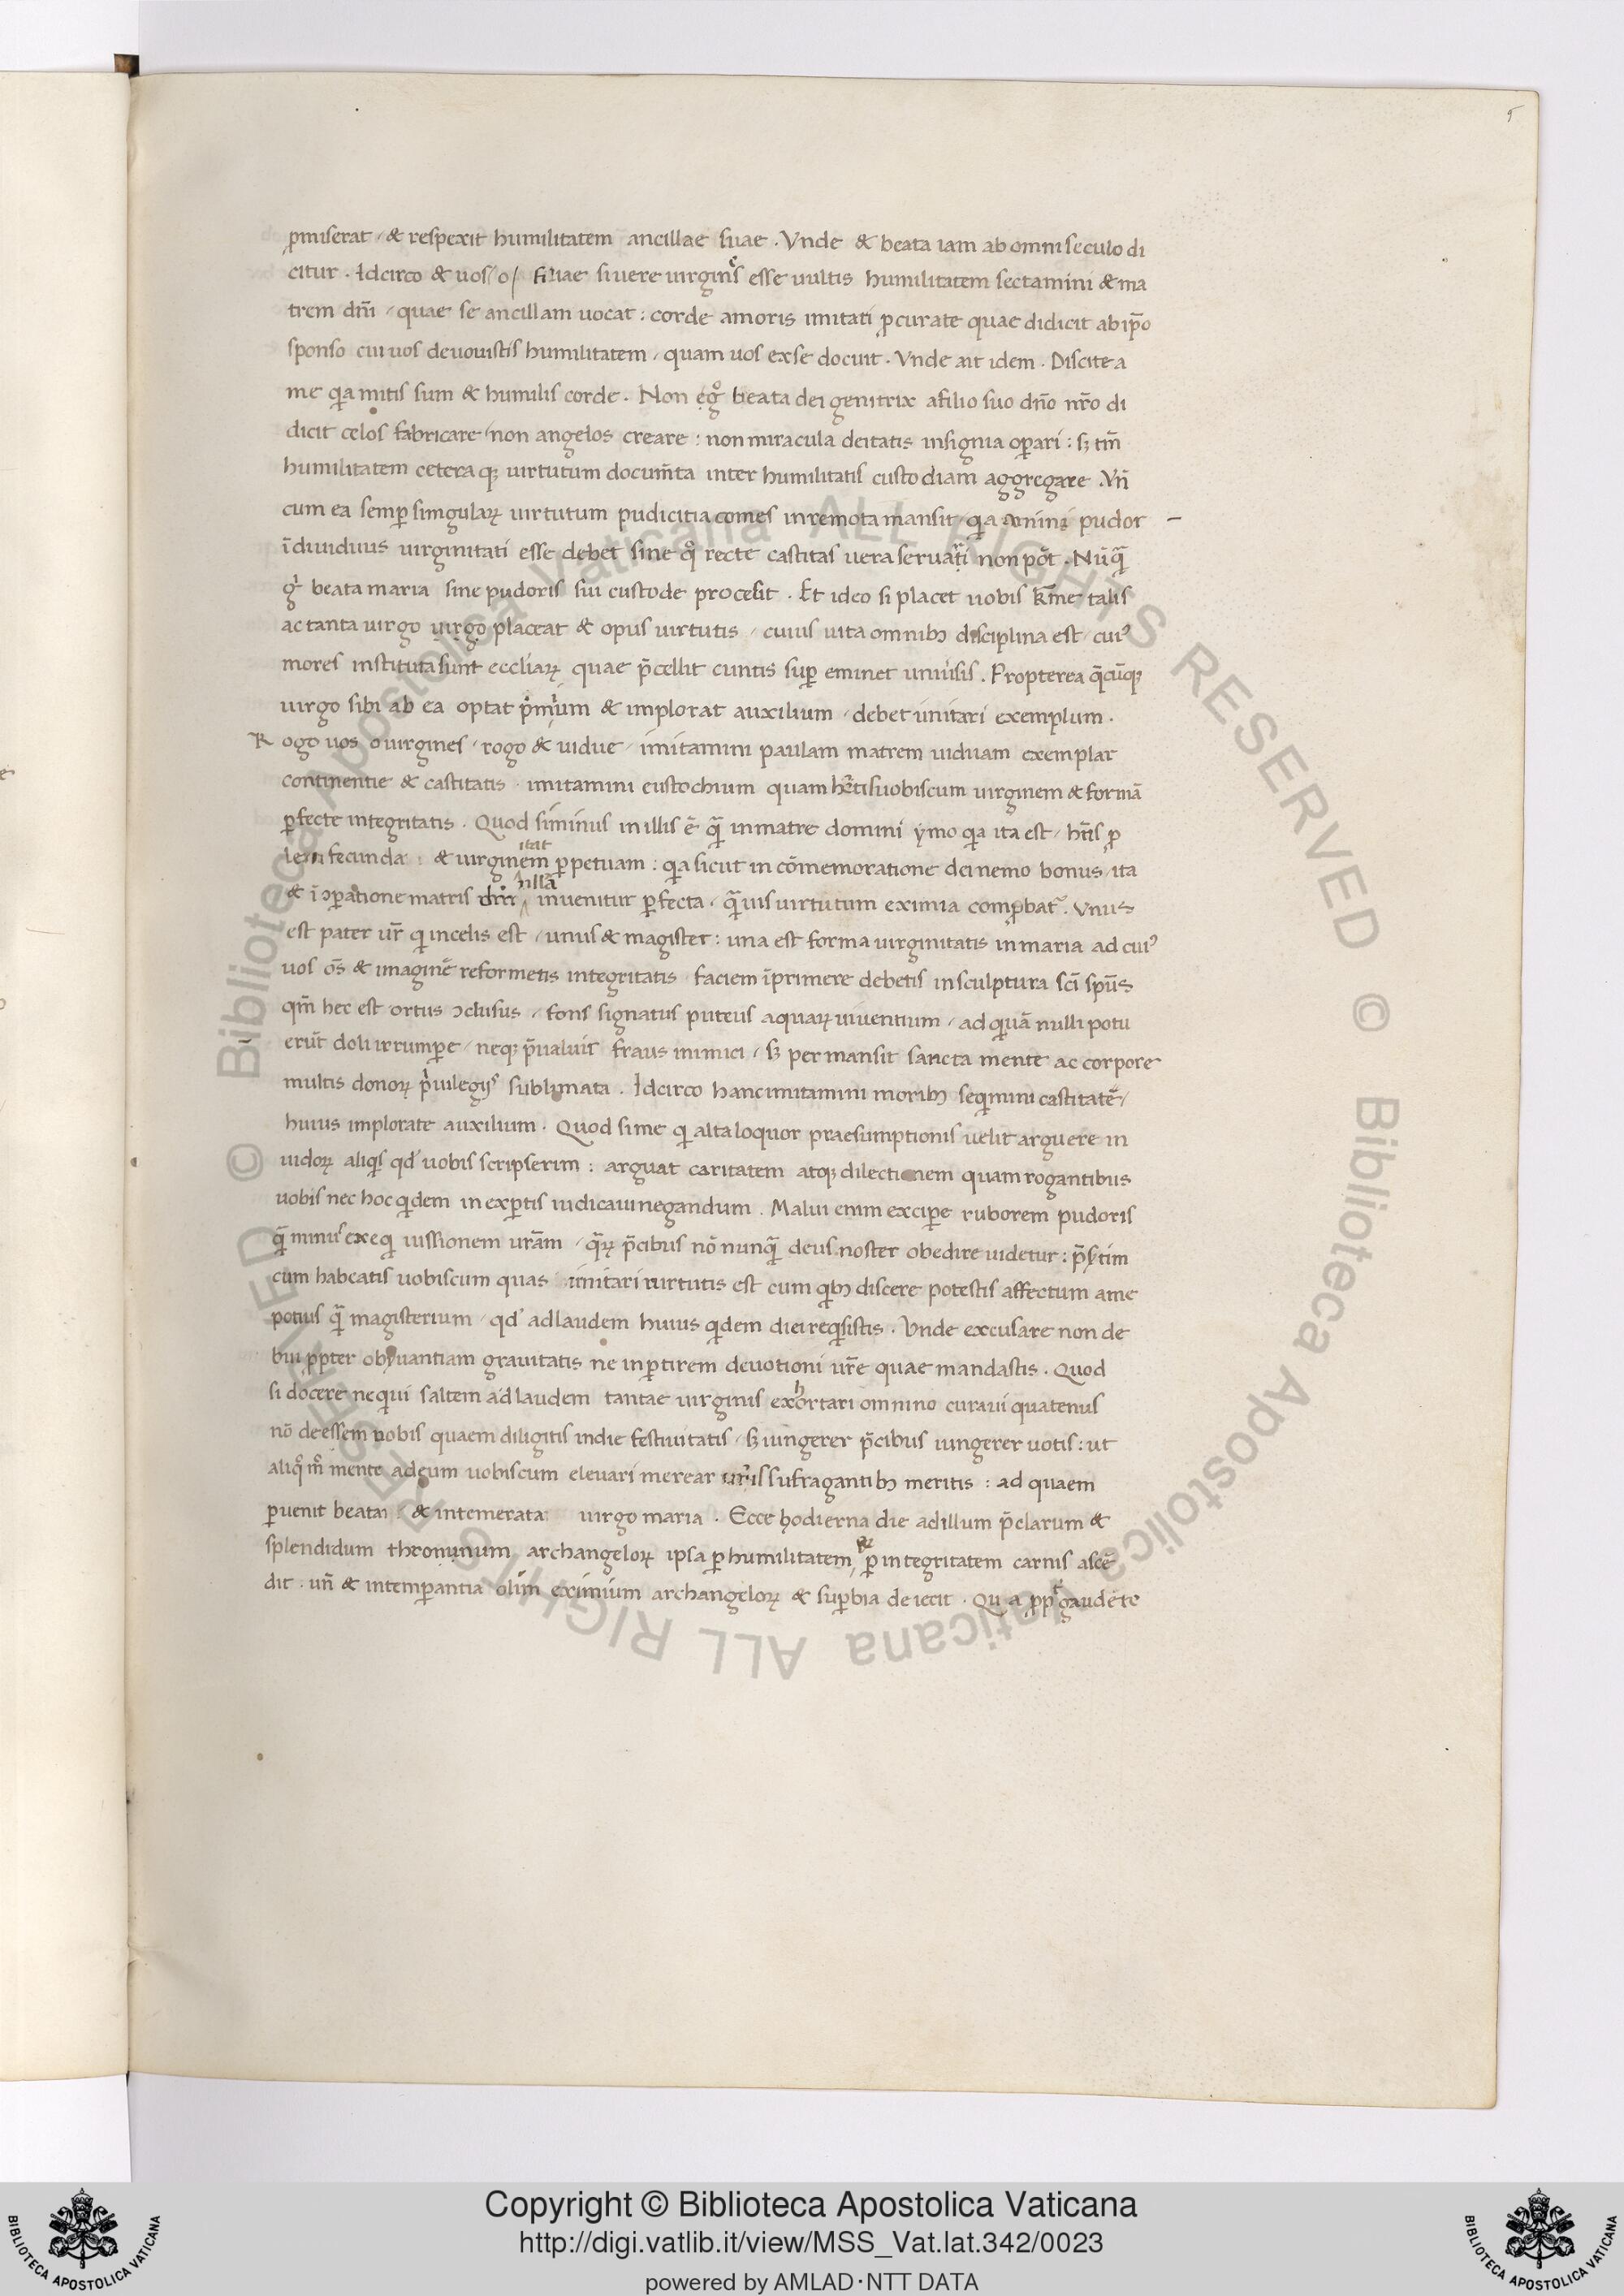 5
ꝓmiserat / & respexit humilitatem ancillae suae . Vnde & beata iam ab omni seculo di
citur . Idcirco & uos / o / filiae si uere uirgines esse uultis humilitatem sectamini & ma
trem dñi / quae se ancillam uocat : corde amoris imitati ꝓcurate quae didicit ab ip̄o
sponso cui uos deuouistis humilitatem / quam uos ex se docuit . Vnde ait idem . Discite a
me qa mitis sum & humilis corde . Non eg̊ beata dei genitrix a filio suo dño nr̄o di
dicit celos fabricare / non angelos creare : non miracula deitatis insignia oꝑari : sꝫ tm̄
humilitatem ceteraqꝫ uirtutum docum̄ta inter humilitatis custodiam aggregare . Vñ
cum ea semꝑ singularꝝ uirtutum pudicitia comes inremota mansit / qa pudor
īdiuiduus uirginitati esse debet sine qͦ recte castitas uera seruari non pōt . Nūqᷓ
gͥ beata maria sine pudoris sui custode procesit . Et ideo si placet uobis kr̄me talis
ac tanta uirgo uirgo placeat & opus uirtutis / cuius uita omnibꝫ disciplina est / cuiꝰ
mores instituta sunt eccliarꝝ quae p̄cellit cuntis suꝑ eminet uniuͥsis . Propterea q̄cūqꝫ
uirgo sibi ab ea optat p̄mium & implorat auxilium / debet imitari exemplum .
Rogo uos o uirgines / rogo & uidue / imitamini paulam matrem uiduam exemplar
continentie & castitatis . imitamini eustochium quam hētis uobiscum uirginem & formā
ꝑfecte integritatis . Quod si minus in illis ē qᷓ in matre domini ymo qa ita est / hētis ꝓ
lem fecunda & uirginem itat ꝑpetuam : qa sicut in cōmemoratione dei nemo bonus / ita
& ī ꝯꝑatione matris dñi nulla inuenitur ꝑfecta / qᷓuis uirtutum eximia comꝓbatᷣ . Vnus
est pater ur̄ qi in celis est / unus & magister : una est forma uirginitatis in maria ad cuiꝰ
uos os̄ & imaginē reformetis integritatis faciem īprimere debetis in sculptura sc̄i sp̄us
qm̄ hec est ortus ꝯclusus / fons signatus puteus aquarꝝ uiuentium / ad quā nulli potu
erūt doli irrumꝑe / neqꝫ p̄ualuit fraus inimici / sꝫ permansit sancta mente ac corpore
multis donorꝝ pͥuilegijs sublimata . Idcirco hanc imitamini moribꝫ seqimini castitatē /
huius implorate auxilium . Quod si me qi alta loquor praesumptionis uelit arguere in
uidorꝝ aliqis qd' uobis scripserim : arguat caritatem atqꝫ dilectionem quam rogantibus
uobis nec hoc qidem in exꝑtis iudicaui negandum . Malui enim exciꝑe ruborem pudoris
qᷓ minus exeqi iussionem ur̄am / qᷓrꝝ p̄cibus nō nunqᷓ deus noster obedire uidetur : p̄sꝫtim
cum habeatis uobiscum quas imitari uirtutis est cum qibꝫ discere potestis affectum a me
potius qᷓ magisterium / qd' ad laudem huius qidem diei reqisistis . Vnde excusare non de
bui ꝓpter obseruantiam grauitatis ne inꝑtirem deuotioni ur̄e quae mandastis . Quod
si docere nequi saltem ad laudem tantae uirginis exhortari omnino curaui quatenus
nō deessem uobis quaem diligitis in die festiuitatis / sꝫ iungerer p̄cibus iungerer uotis : ut
aliqͦ mͦ mente ad eum uobiscum eleuari merear ur̄is sufragantibꝫ meritis : ad quaem
ꝑuenit beata & intemerata uirgo maria . Ecce hodierna die ad illum p̄clarum &
splendidum thronum archangelorꝝ ipsa ꝑ humilitatem ꝑ integritatem carnis ascē
dit . uñ & intemꝑantia olim eximium archangelorꝝ & suꝑbia deiecit . Qua ꝓpͭ gaudete
Copyright © Biblioteca Apostolica Vaticana
http://digi.vatlib.it/view/MSS_Vat.lat.342/0023
powered by AMLAD·NTT DATA
BIBLIOTECA APOSTOLICA VATICANA
BIBLIOTECA APOSTOLICA VATICANA
© Biblioteca Apostolica Vaticana ALL RIGHTS RESERVED
© Biblioteca Apostolica Vaticana ALL RIGHTS RESERVED